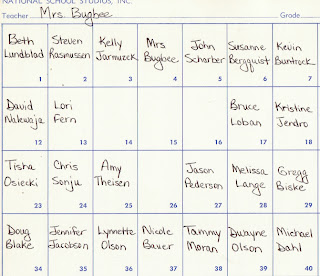 NATIONAL SCHOOL STUDIOS, INC.
Teacher Mrs. Bugbee Grade
Beth Steven Kelly Mrs John Susanne Kevin
Lundblad Rasmussen Jarmuzek Bugbee Scharber Bergquist Buntrock
1 2 3 4 5 6 7
David Lori Bruce Kristine
Nalewaja Fern Loban Jendro
12 13 14 15 16 17 18
Tisha Chris Amy Jason Melissa Gregg
Osiecki Sonju Theisen Pederson Lange Biske
23 24 25 26 27 28 29
Doug Jennifer Lynnette Nicole Tammy Dwayne Michael
Blake Jacobson Olson Bauer Moran Olson Dahl
35 36 37 38 39 40